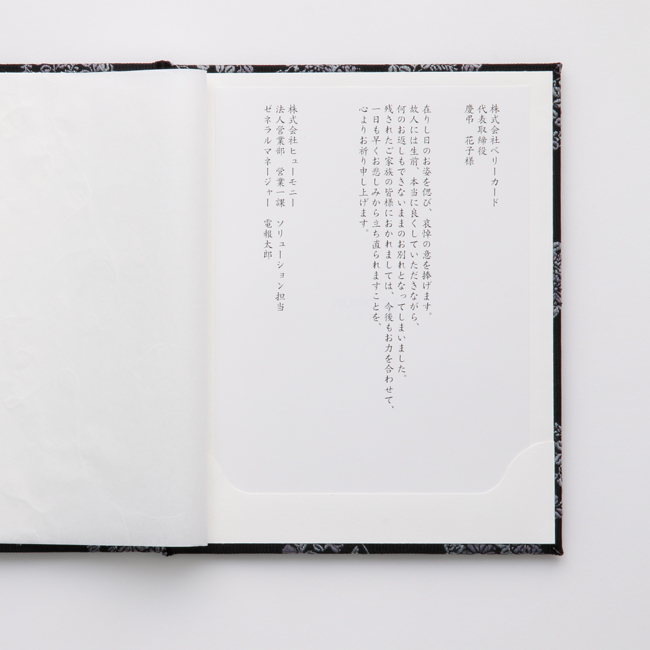 株式会社ベリーカード
代表取締役
慶弔　花子様
在りし日のお姿を偲び、哀悼の意を捧げます。
故人には生前、本当に良くしていただきながら、
何のお返しもできないままのお別れとなってしまいました。
残されたご家族の皆様におかれましては、今後もお力を合わせて、
一日も早くお悲しみから立ち直られますことを、
心よりお祈り申し上げます。
株式会社ヒューモニー
法人営業部　営業一課　ソリューション担当
ゼネラルマネージャー　電報太郎